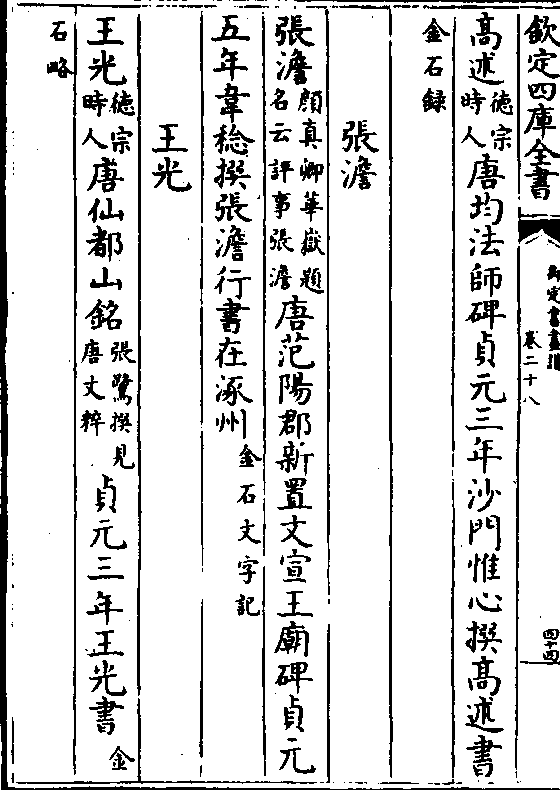 欽定四庫全書
卷二十八
四十四
高述德宗時人唐均法師碑貞元三年沙門惟心撰高述書
金石録
張澹
張澹顔真卿華嶽題名云評事張澹唐范陽郡新置文宣王廟碑貞元
五年韋稔撰張澹行書在涿州金石文字記
王光
王光德宗時人唐仙都山銘張鷺撰見唐文粹貞元三年王光書金
石略